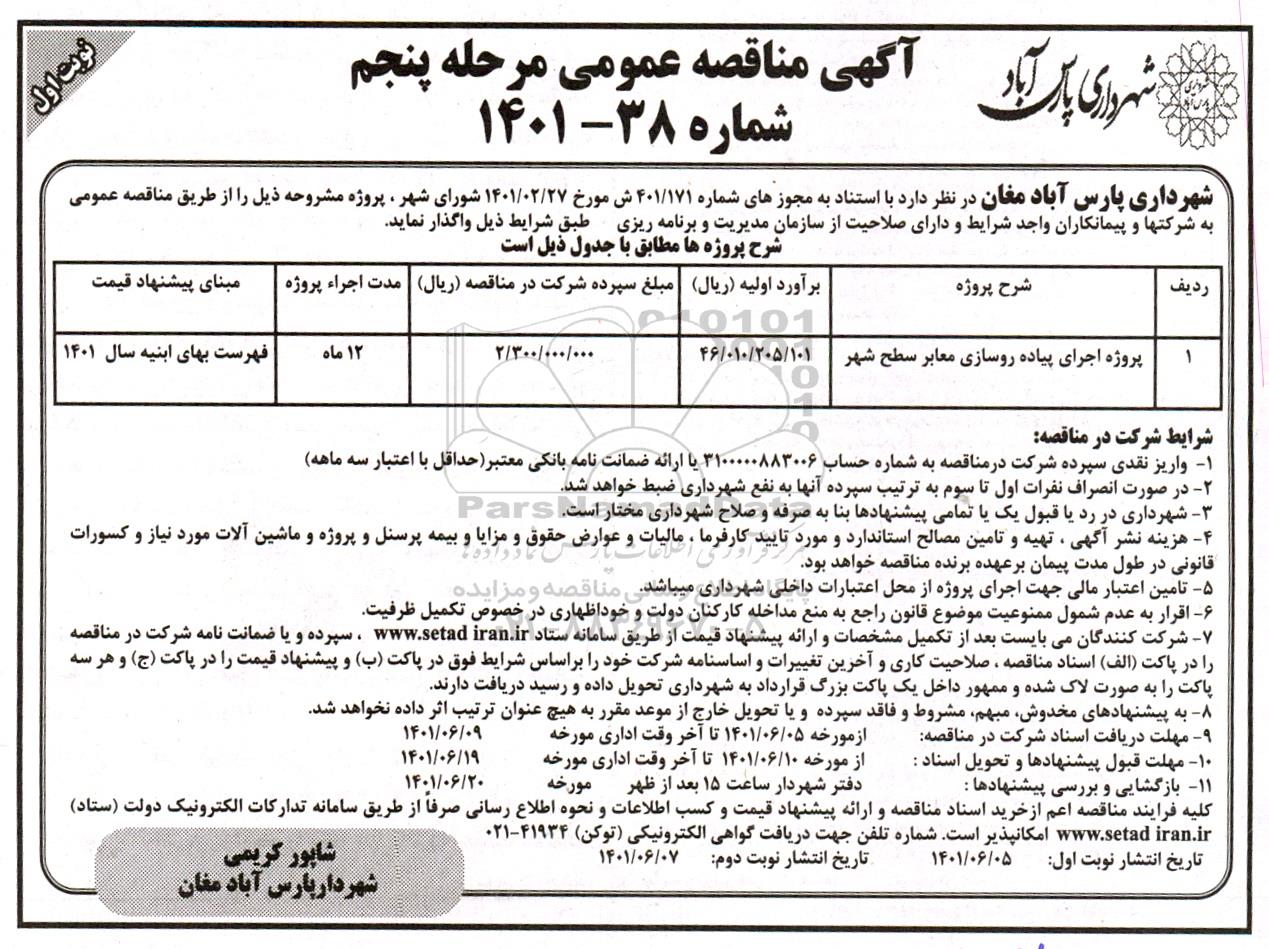 نوبت اول
شهرداری پارس آباد
آگهی مناقصه عمومی مرحله پنجم
شماره ۳۸- ۱۴۰۱
شهرداری پارس آباد مغان در نظر دارد با استناد به مجوز های شماره ۴۰۱/۱۷۱ ش مورخ ۱۴۰۱/۰۲/۲۷ شورای شهر ، پروژه مشروحه ذیل را از طریق مناقصه عمومی
به شرکتها و پیمانکاران واجد شرایط و دارای صلاحیت از سازمان مدیریت و برنامه ریزی طبق شرایط ذیل واگذار نماید.
شرح پروژه ها مطابق با جدول ذیل است
ردیف شرح پروژه برآورد اولیه (ریال) مبلغ سپرده شرکت در مناقصه (ریال) مدت اجراء پروژه مبنای پیشنهاد قیمت
۱ پروژه اجرای پیاده روسازی معابر سطح شهر ۴۶/۰۱۰/۲۰۵/۱۰۱ ۲/۳۰۰/۰۰۰/۰۰۰ ۱۲ ماه فهرست بهای ابنیه سال ۱۴۰۱
شرایط شرکت در مناقصه:
۱- واریز نقدی سپرده شرکت درمناقصه به شماره حساب ۳۱۰۰۰۰۰۸۸۳۰۰۶ یا ارائه ضمانت نامه بانکی معتبر(حداقل با اعتبار سه ماهه)
۲- در صورت انصراف نفرات اول تا سوم به ترتیب سپرده آنها به نفع شهرداری ضبط خواهد شد.
۳- شهرداری در رد یا قبول یک یا تمامی پیشنهادها بنا به صرفه و صلاح شهرداری مختار است.
۴- هزینه نشر آگهی ، تهیه و تامین مصالح استاندارد و مورد تایید کارفرما ، مالیات و عوارض حقوق و مزایا و بیمه پرسنل و پروژه و ماشین آلات مورد نیاز و کسورات
قانونی در طول مدت پیمان برعهده برنده مناقصه خواهد بود.
۵- تامین اعتبار مالی جهت اجرای پروژه از محل اعتبارات داخلی شهرداری میباشد.
۶- اقرار به عدم شمول ممنوعیت موضوع قانون راجع به منع مداخله کارکنان دولت و خوداظهاری در خصوص تکمیل ظرفیت.
۷- شرکت کنندگان می بایست بعد از تکمیل مشخصات و ارائه پیشنهاد قیمت از طریق سامانه ستاد www.setad iran.ir ، سپرده و یا ضمانت نامه شرکت در مناقصه
را در پاکت (الف) اسناد مناقصه ، صلاحیت کاری و آخرین تغییرات و اساسنامه شرکت خود را براساس شرایط فوق در پاکت (ب) و پیشنهاد قیمت را در پاکت (ج) و هر سه
پاکت را به صورت لاک شده و ممهور داخل یک پاکت بزرگ قرارداد به شهرداری تحویل داده و رسید دریافت دارند.
۸- به پیشنهادهای مخدوش، مبهم، مشروط و فاقد سپرده و یا تحویل خارج از موعد مقرر به هیچ عنوان ترتیب اثر داده نخواهد شد.
۹- مهلت دریافت اسناد شرکت در مناقصه: ازمورخه ۱۴۰۱/۰۶/۰۵ تا آخر وقت اداری مورخه ۱۴۰۱/۰۶/۰۹
۱۰- مهلت قبول پیشنهادها و تحویل اسناد : از مورخه ۱۴۰۱/۰۶/۱۰ تا آخر وقت اداری مورخه ۱۴۰۱/۰۶/۱۹
۱۱- بازگشایی و بررسی پیشنهادها : دفتر شهردار ساعت ۱۵ بعد از ظهر مورخه ۱۴۰۱/۰۶/۲۰
کلیه فرایند مناقصه اعم ازخرید اسناد مناقصه و ارائه پیشنهاد قیمت و کسب اطلاعات و نحوه اطلاع رسانی صرفاً از طریق سامانه تدارکات الکترونیک دولت (ستاد)
www.setad iran.ir امکانپذیر است. شماره تلفن جهت دریافت گواهی الکترونیکی (توکن) ۴۱۹۳۴-۰۲۱
تاریخ انتشار نوبت اول: ۱۴۰۱/۰۶/۰۵ تاریخ انتشار نوبت دوم: ۱۴۰۱/۰۶/۰۷
شاپور کریمی
شهردارپارس آباد مغان
ParsNamadData
مرکز فرآوری اطلاعات پارس نماد داده ها
پایگاه اطلاع رسانی مناقصه و مزایده
۰۲۱-۸۸۳۴۹۶۷۰-۵